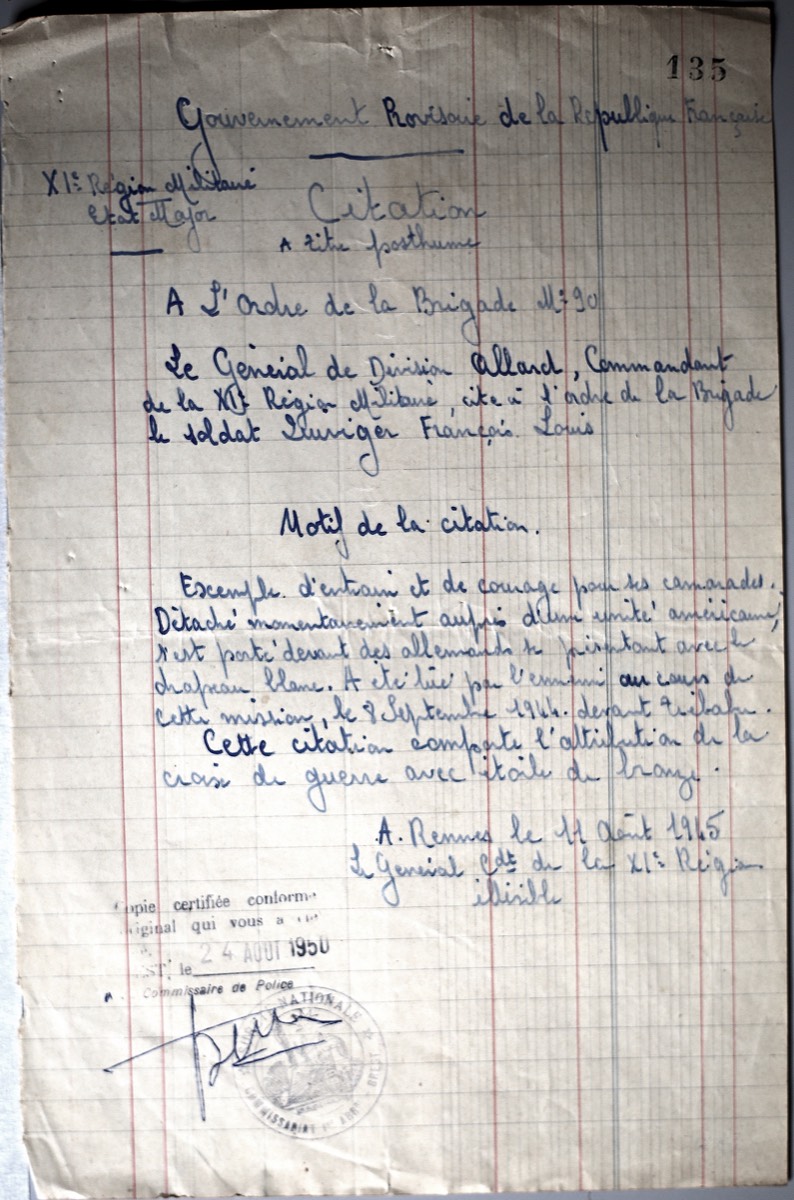 135
Gouvernement Provisoire de la République Française
XIe Région Militaire
Etat Major
Citation
A titre posthume
A L'Ordre de la Brigade No 90
Le Général de Division Allard, Commandant
de la XIe Région Militaire, cite à l'ordre de la Brigade
le soldat François Louis
Motif de la citation.
Exemple d'entrain et de courage pour ses camarades.
Détaché momentanément auprès d'une unité américaine,
s'est porté devant des allemands se présentant avec le
drapeau blanc. A été tué par l'ennemi au cours de
cette mission, le 8 Septembre 1944. devant
Cette citation comporte l'attribution de la
croix de guerre avec étoile de bronze.
A. Rennes le 11 Août 1945
Le Général Cdt de la XIe Région
illisible
opie certifiée conform
iginal qui vous a
24 AOUT 1950
ST, le
Commissaire de Police
NATIONALE
COMMISSARIAT